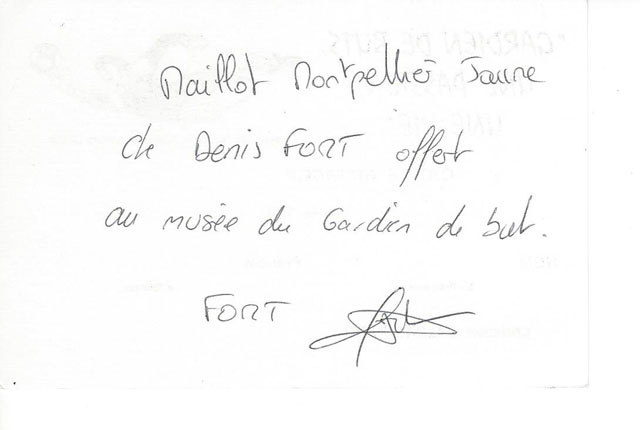 Maillot Montpellier Jaune
de Denis FORT offert
au musée du Gardien de but.
FORT